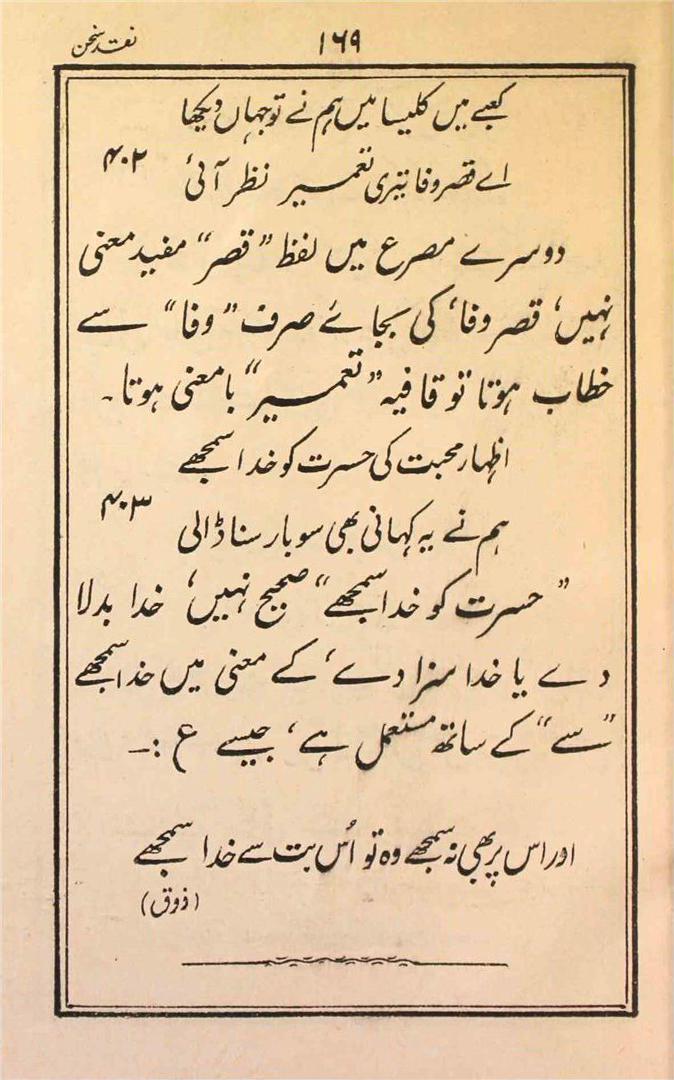 نقد سخن
۱۶۹
کعبے میں کلیسا میں ہم نے تو جہاں دیکھا
اے قصر وفا تیری تعمیر نظر آئی ۴۰۲
دوسرے مصرع میں لفظ ”قصر“ مفید معنی
نہیں، قصر وفا، کی بجائے صرف ”وفا“ سے
خطاب ہوتا تو قافیہ ”تعمیر“ با معنی ہوتا۔
اظہار محبت کی حسرت کو خدا سمجھے
ہم نے یہ کہانی بھی سو بار سنا ڈالی ۴۰۳
”حسرت کو خدا سمجھے“ صحیح نہیں، خدا بدلا
دے یا خدا سزا دے، کے معنی میں خدا سمجھے
”سے“ کے ساتھ مستعمل ہے، جیسے ع :۔
اور اس پر بھی نہ سمجھے وہ تو اُس بت سے خدا سمجھے
(ذوق)